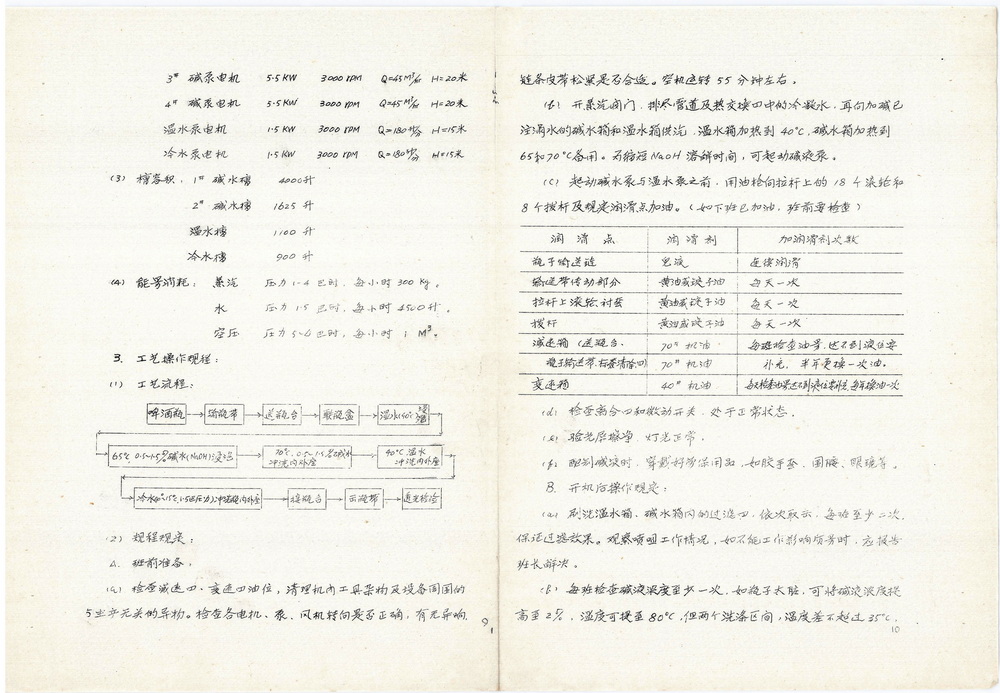 3# 碱泵电机 5.5KW 3000rpm Q=45M³/时 H=20米
4# 碱泵电机 5.5KW 3000rpm Q=45M³/时 H=20米
温水泵电机 1.5KW 3000rpm Q=180 H=15米
冷水泵电机 1.5KW 3000rpm Q=180 H=15米
(3) 槽容积, 1# 碱水槽 4000升
2# 碱水槽 1625升
温水槽 1100升
冷水槽 900升
(4) 能量消耗: 蒸汽 压力1-4巴时, 每小时300kg。
水 压力1.5巴时, 每小时4500升。
空压 压力5-6巴时, 每小时1M³。
3. 工艺操作规程:
(1) 工艺流程:
啤酒瓶 → 输瓶带 → 送瓶台 → 载瓶盒 → 温水40℃浸泡
65℃ 0.5~1.5%碱水(NaOH)浸泡 → 70℃, 0.5~1.5%碱水冲洗内外壁 → 40℃温水冲洗内外壁
冷水 冲洗瓶内外壁 → 接瓶台 → 出瓶带 → 透光检验
(2) 规程规定:
A. 班前准备:
(a) 检查减速四、变速四油位, 清理机内工具杂物及设备周围的
与生产无关的异物。检查各电机、泵、风机转向是否正确, 有无异响,
9
链条皮带松紧是否合适。空机运转55分钟左右。
(b) 开蒸汽阀门, 排尽管道及热交换四中的冷凝水, 再向加碱已
注满水的碱水箱和温水箱供汽, 温水箱加热到40℃, 碱水箱加热到
65和70℃备用。为缩短NaOH溶解时间, 可起动碱液泵。
(c) 起动碱水泵与温水泵之前, 用油枪向拉杆上的18个滚轮和
8个拨杆及规定润滑点加油。(如下班已加油, 班前要检查)
润滑点 润滑剂 加润滑剂次数
瓶子输送链 皂液 连续润滑
输送带传动部分 黄油或锭子油 每天一次
拉杆上滚轮、衬套 黄油或锭子油 每天一次
拨杆 黄油或锭子油 每天一次
减速箱(送瓶台、 70#机油 每班检查油量, 达不到液位要
瓶子输送带、标签清除四) 70#机油 补充, 半年更换一次油。
变速箱 40#机油 每年换油一次
(d) 检查离合四和微动开关, 处于正常状态。
(e) 验光屏擦净, 灯光正常。
(f) 配制碱液时, 穿戴好劳保用品, 如胶手套、围腰、眼镜等。
B. 开机后操作规定:
(a) 刷洗温水箱、碱水箱内的过滤四, 依次取出, 每班至少二次,
保证过滤效果。观察喷咀工作情况, 如不能工作影响质量时, 应报告
班长解决。
(b) 每班检查碱液浓度至少一次, 如瓶子太脏, 可将碱液浓度提
高至2%, 温度可提至80℃, 但两个洗涤区间, 温度差不超过35℃,
10